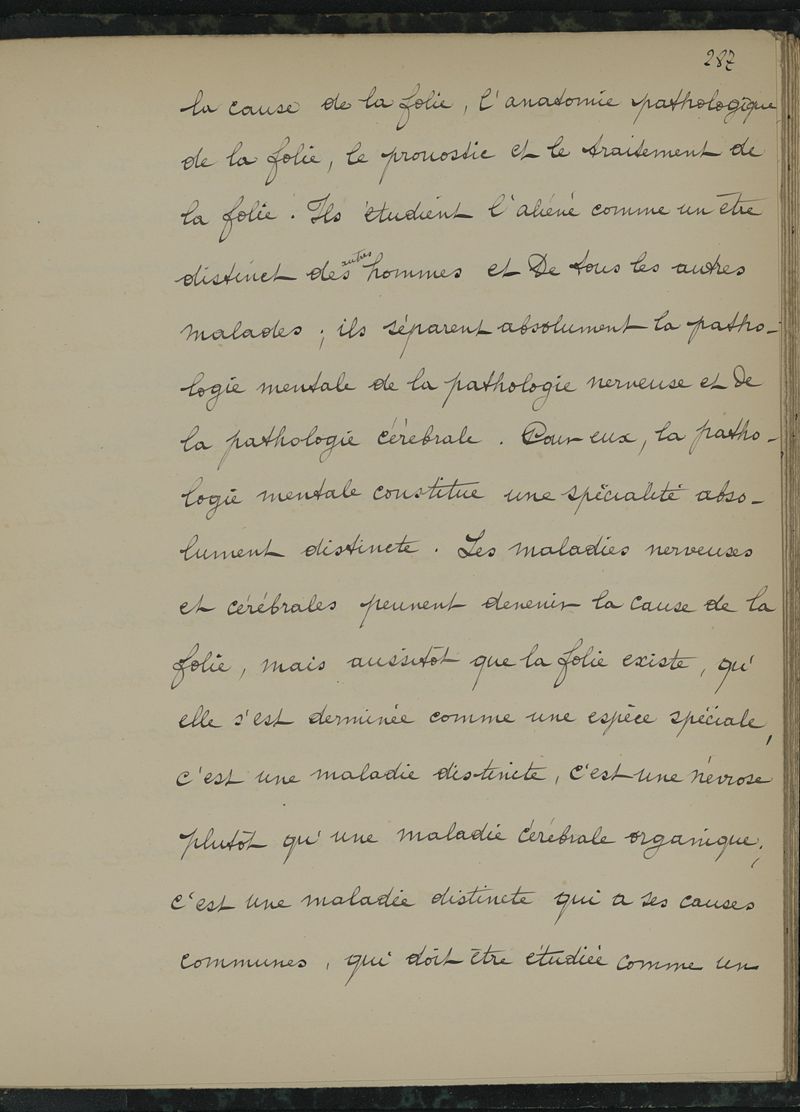 287
la cause de la folie, l'anatomie pathologique
de la folie, le pronostic et le traitement de
la folie. Ils étudient l'aliéné comme un être
distinct des autres hommes et De tous les autres
malades ; ils séparent absolument la patho-
logie mentale de la pathologie nerveuse et De
la pathologie cérébrale. Pour eux, la patho-
logie mentale constitue une spécialité abso-
lument distincte. Les maladies nerveuses
et cérébrales peuvent devenir la cause de la
folie, mais aussitôt que la folie existe, qu'
elle s'est derminée comme une espèce spéciale,
c'est une maladie distincte, c'est une névrose
plutôt qu'une maladie cérébrale organique ;
c'est une maladie distincte qui a ses causes
communes, qui doit être étudiée comme un